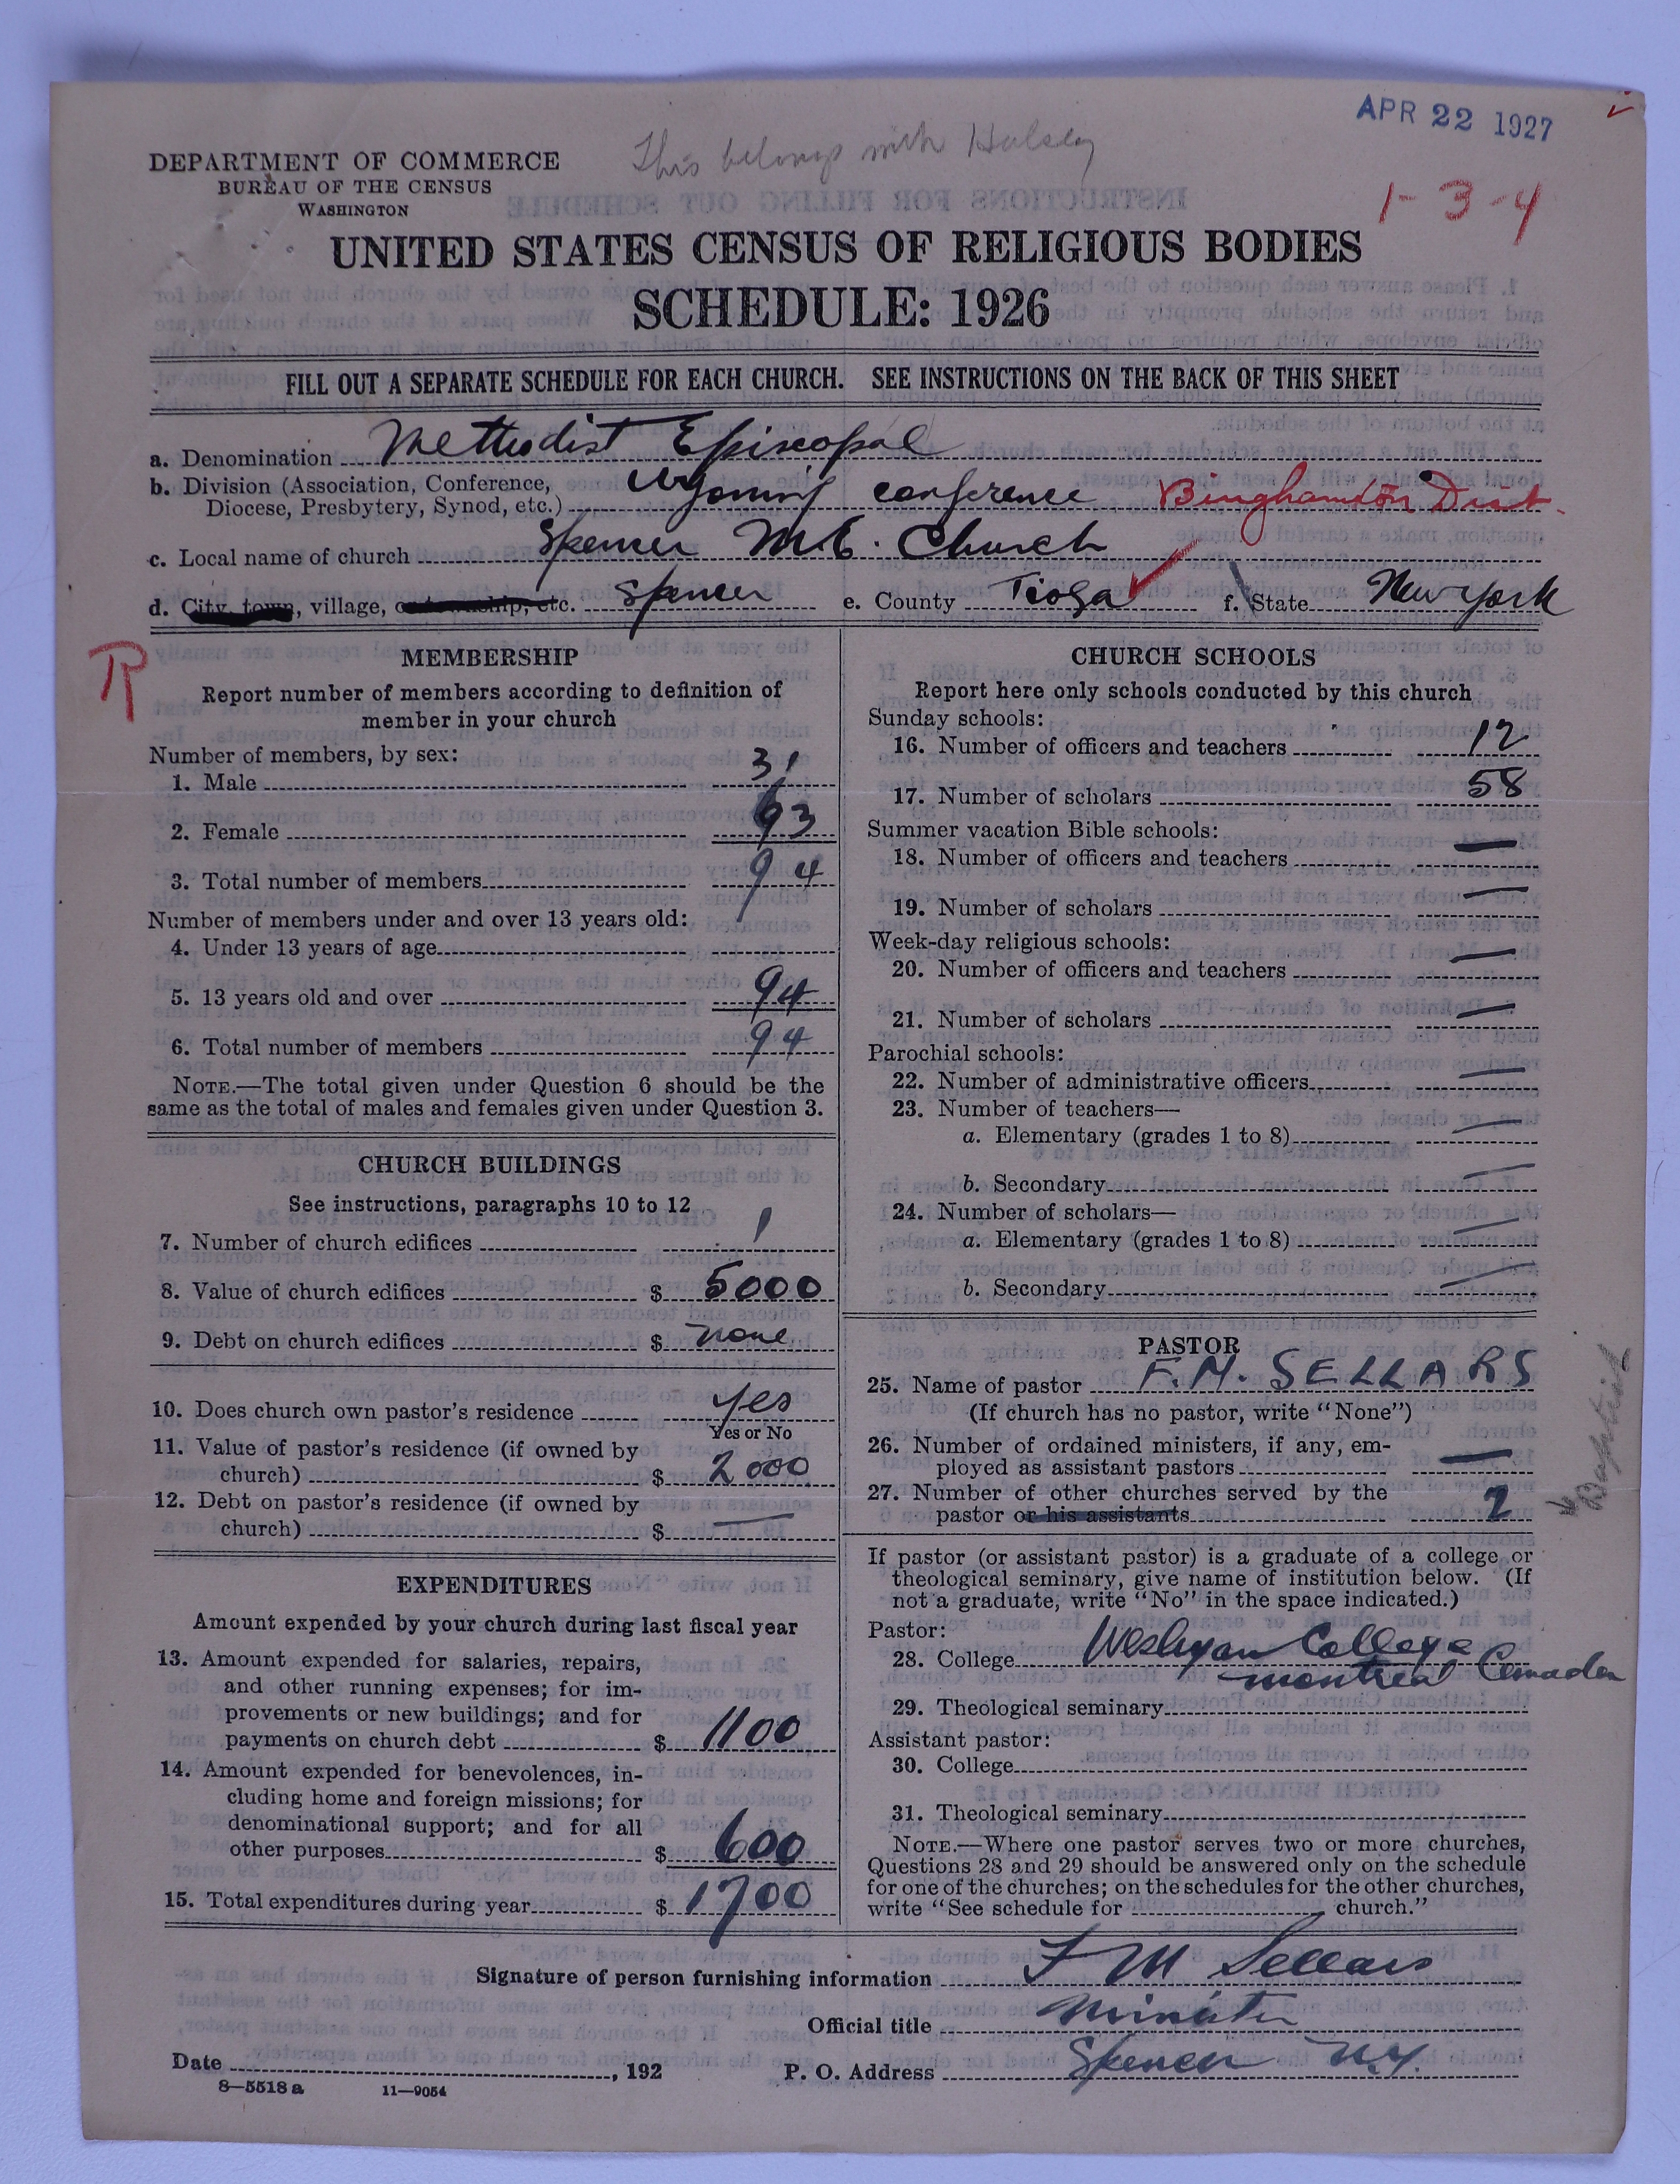 APR 22 1927
This belongs with Halsey
DEPARTMENT OF COMMERCE
BUREAU OF THE CENSUS
WASHINGTON
1-3-4
UNITED STATES CENSUS OF RELIGIOUS BODIES
SCHEDULE: 1926
FILL OUT A SEPARATE SCHEDULE FOR EACH CHURCH. SEE INSTRUCTIONS ON THE BACK OF THIS SHEET
a. Denomination Methodist Episcopal
b. Division (Association, Conference,
Diocese, Presbytery, Synod, etc.) Wyoming conference Binghamton Dist.
c. Local name of church Spencer M.E. Church
d. City, town, village, or township, etc. Spencer e. County Tioga f. State New York
R
MEMBERSHIP
Report number of members according to definition of
member in your church
Number of members, by sex:
1. Male 31
2. Female 63
3. Total number of members 94
Number of members under and over 13 years old:
4. Under 13 years of age
5. 13 years old and over 94
6. Total number of members 94
NOTE.—The total given under Question 6 should be the
same as the total of males and females given under Question 3.
CHURCH BUILDINGS
See instructions, paragraphs 10 to 12
7. Number of church edifices 1
8. Value of church edifices $ 5000
9. Debt on church edifices $ none
10. Does church own pastor's residence yes
Yes or No
11. Value of pastor's residence (if owned by
church) $ 2000
12. Debt on pastor's residence (if owned by
church) $ —
EXPENDITURES
Amount expended by your church during last fiscal year
13. Amount expended for salaries, repairs,
and other running expenses; for im-
provements or new buildings; and for
payments on church debt $ 1100
14. Amount expended for benevolences, in-
cluding home and foreign missions; for
denominational support; and for all
other purposes $ 600
15. Total expenditures during year $ 1700
CHURCH SCHOOLS
Report here only schools conducted by this church
Sunday schools:
16. Number of officers and teachers 12
17. Number of scholars 58
Summer vacation Bible schools:
18. Number of officers and teachers —
19. Number of scholars —
Week-day religious schools:
20. Number of officers and teachers —
21. Number of scholars —
Parochial schools:
22. Number of administrative officers —
23. Number of teachers—
a. Elementary (grades 1 to 8) —
b. Secondary —
24. Number of scholars—
a. Elementary (grades 1 to 8) —
b. Secondary —
PASTOR
25. Name of pastor F. M. SELLARS
(If church has no pastor, write "None")
26. Number of ordained ministers, if any, em-
ployed as assistant pastors —
27. Number of other churches served by the
pastor or his assistants 2
Baptist
If pastor (or assistant pastor) is a graduate of a college or
theological seminary, give name of institution below. (If
not a graduate, write "No" in the space indicated.)
Pastor:
28. College Wesleyan College
Montreal Canada
29. Theological seminary
Assistant pastor:
30. College
31. Theological seminary
NOTE.—Where one pastor serves two or more churches,
Questions 28 and 29 should be answered only on the schedule
for one of the churches; on the schedules for the other churches,
write "See schedule for church."
Signature of person furnishing information F M Sellars
Official title Minister
Date , 192 P. O. Address Spencer N.Y.
8—5518 a 11—9054